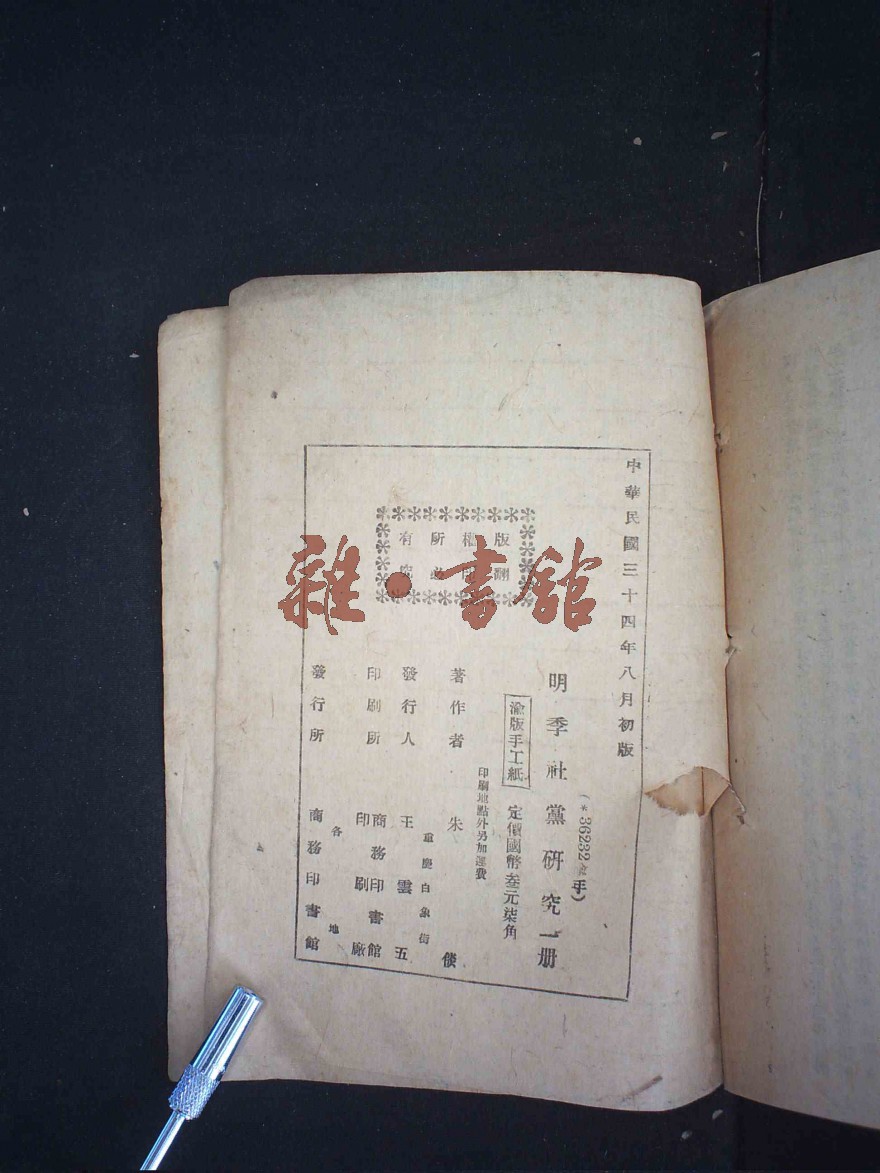 中華民國三十四年八月初版
(*36232 手)
明季社黨研究一册
渝版手工紙
定價國幣叁元柒角
印刷地點外另加運費
著作者 朱倓
重慶白象街
發行人 王雲五
印刷所 商務印書館印刷廠
各地
發行所 商務印書館
版權所有
翻必究
雜·書館